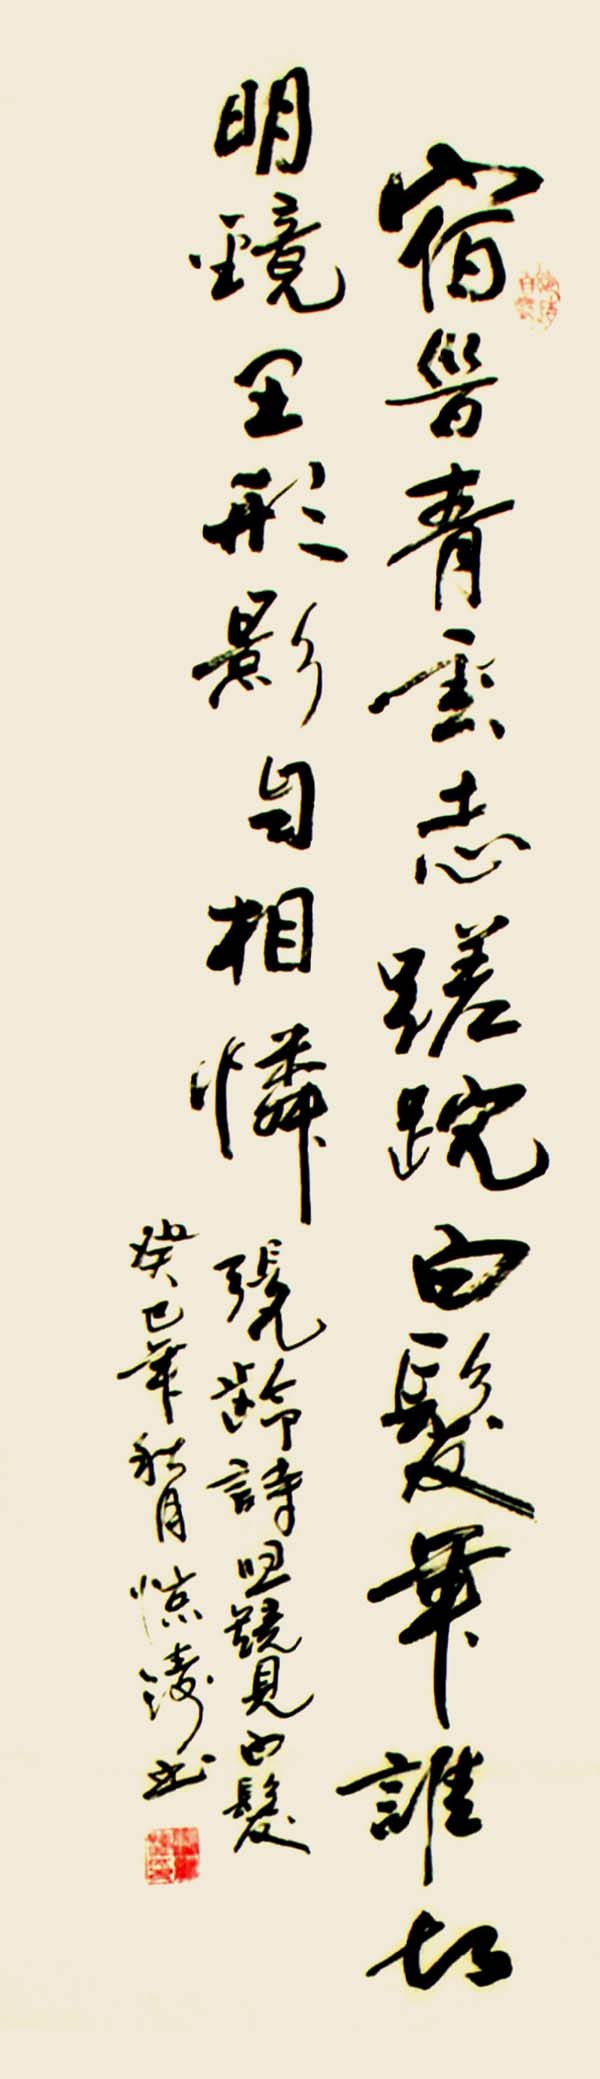 宿昔青雲志蹉跎白髮年誰知
明鏡里形影自相憐
張九齡詩照鏡見白髮
癸巳年秋月书